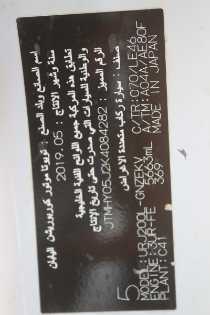 اسم الصانع وبلد الصنع : تويوتا موتور كوربوريشن اليابان
سنة وشهر الإنتاج : 2019.05
تطابق هذه المركبة جميع اللوائح الفنية الخليجية
والوطنية للسيارات التي صدرت حتى تاريخ الإنتاج
الرقم المميز : JTMHY05J2K4084282
صنف : سيارة ركاب متعددة الأغراض
MODEL:URJ200L-GNZEKV
ENGINE:3UR-FE 5663mL
PLANT:C41 369
C/TR:070/LE46
A/TM:A04A/AB80F
MADE IN JAPAN